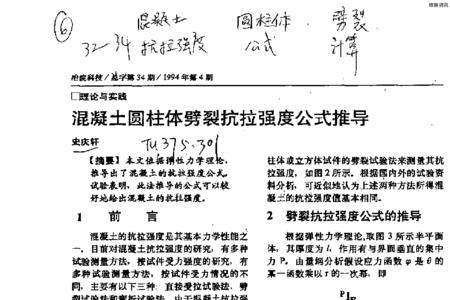 ⑥
混凝土 圆柱体 劈裂
32-34 抗拉强度 公式 计算
冶院科技/总字第34期/1994年第4期
□理论与实践
混凝土圆柱体劈裂抗拉强度公式推导
史庆轩 TU375.301
【摘要】 本文依据弹性力学理论,
推导出了混凝土的抗拉强度公式。
试验表明,此法推导的公式可以较
好地给出混凝土的抗拉强度。
1 前 言
混凝土的抗拉强度是其基本力学性能之
一。目前对混凝土抗拉强度的研究,有多种
试验测量方法,按试件受力强度的研究,有
多种试验测量方法,按试件受力情况的不
同,主要有以下三种:直接受拉试验法、劈
柱体或立方体试件的劈裂试验法来测量其抗
拉强度,如图2所示。根据国内外的试验资
料分析,可近似地认为上述两方法所得混
凝土的抗拉强度值基本相同。
2 劈裂抗拉强度公式的推导
根据弹性力学理论,取图3所示半平面
体,其厚度为1,作用有与界面垂直的集中
力P。由量纲分析假设应力函数φ是θ的
某一函数乘以r的一次幂,即